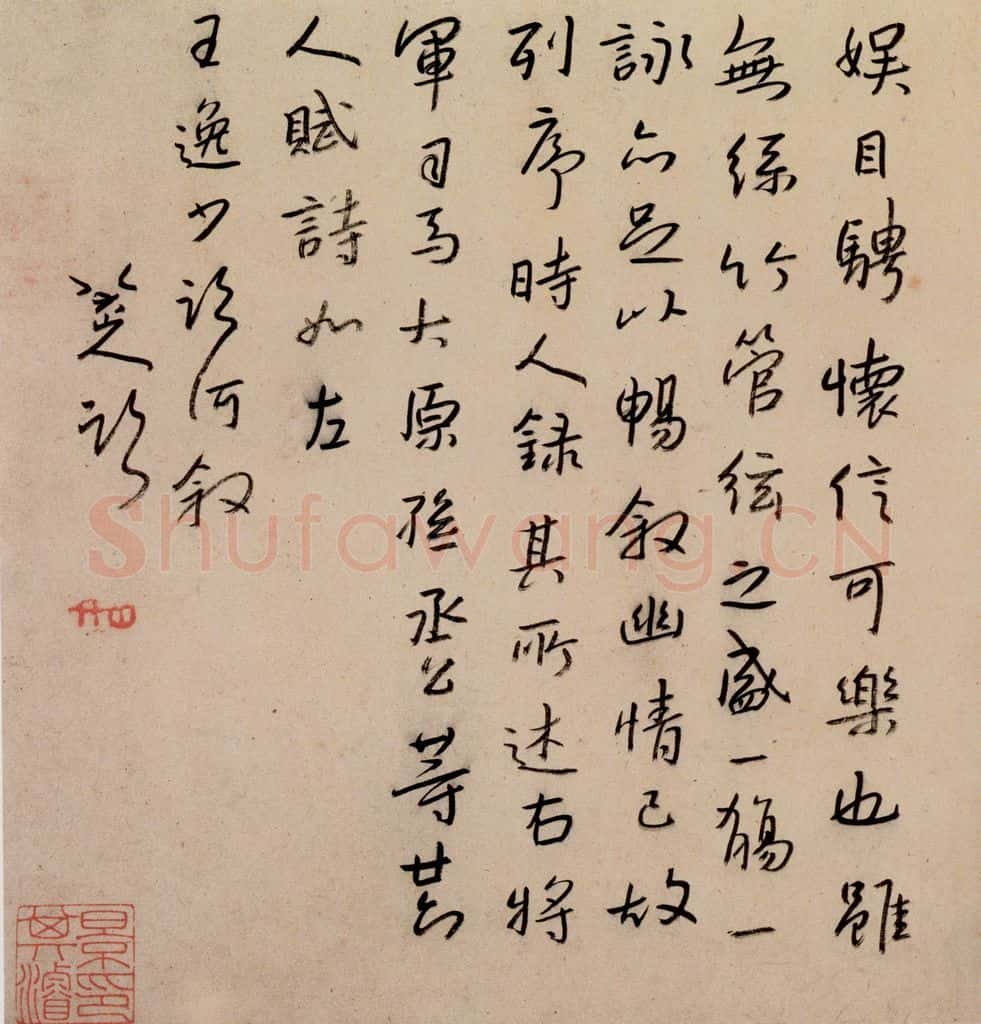 娛目騁懷信可樂也雖
無絲竹管絃之盛一觴一
詠亦足以暢叙幽情已故
列序時人録其所述右將
軍司馬大原孫丞公等廿六
人賦詩如左
王逸少臨河叙
八大山人臨
Shufawang.CN